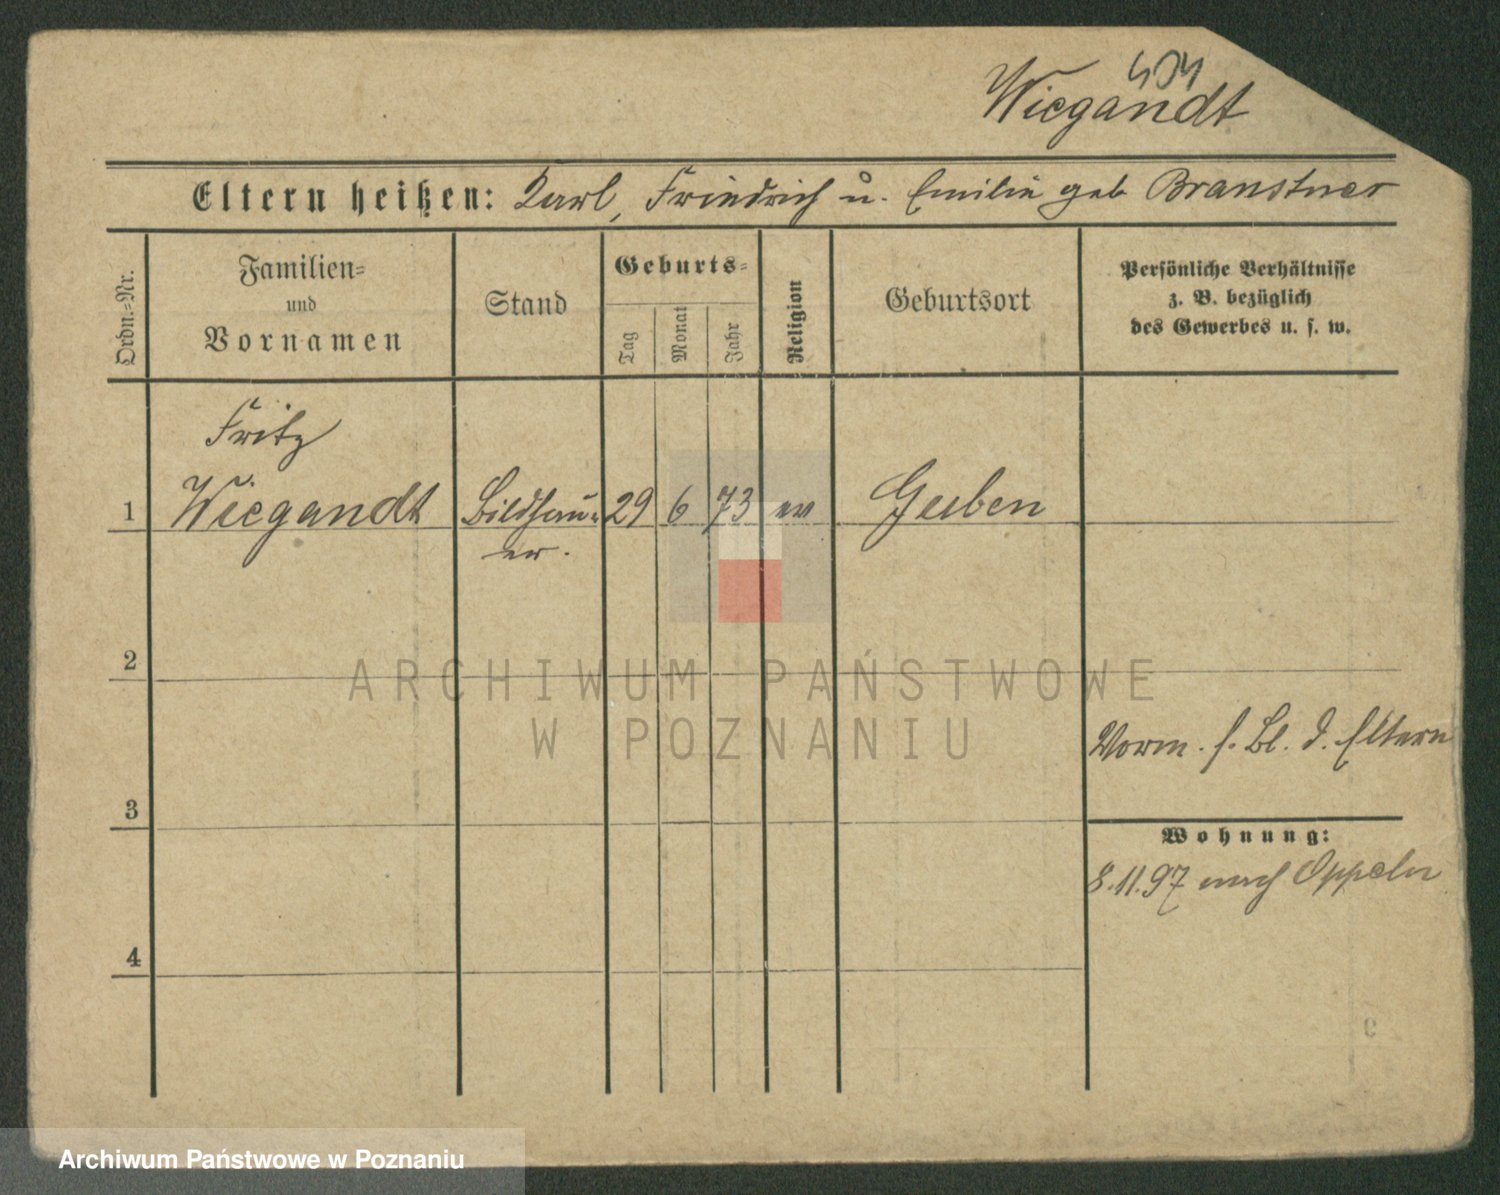 404
Wiegandt
Eltern heißen: Karl, Friedrich u. Emilie geb Branstner
Ordn.=Nr.
Familien=
und
Vornamen
Stand
Geburts=
Tag
Monat
Jahr
Religion
Geburtsort
Persönliche Verhältnisse
z. B. bezüglich
des Gewerbes u. s. w.
Fritz
1 Wiegandt Bildhau= 29 6 73 ev Guben
er.
2
ARCHIWUM PAŃSTWOWE
W POZNANIU
Vorm. s. Bl. d. Eltern
3
Wohnung:
8.11.97 nach Oppeln
4
Archiwum Państwowe w Poznaniu